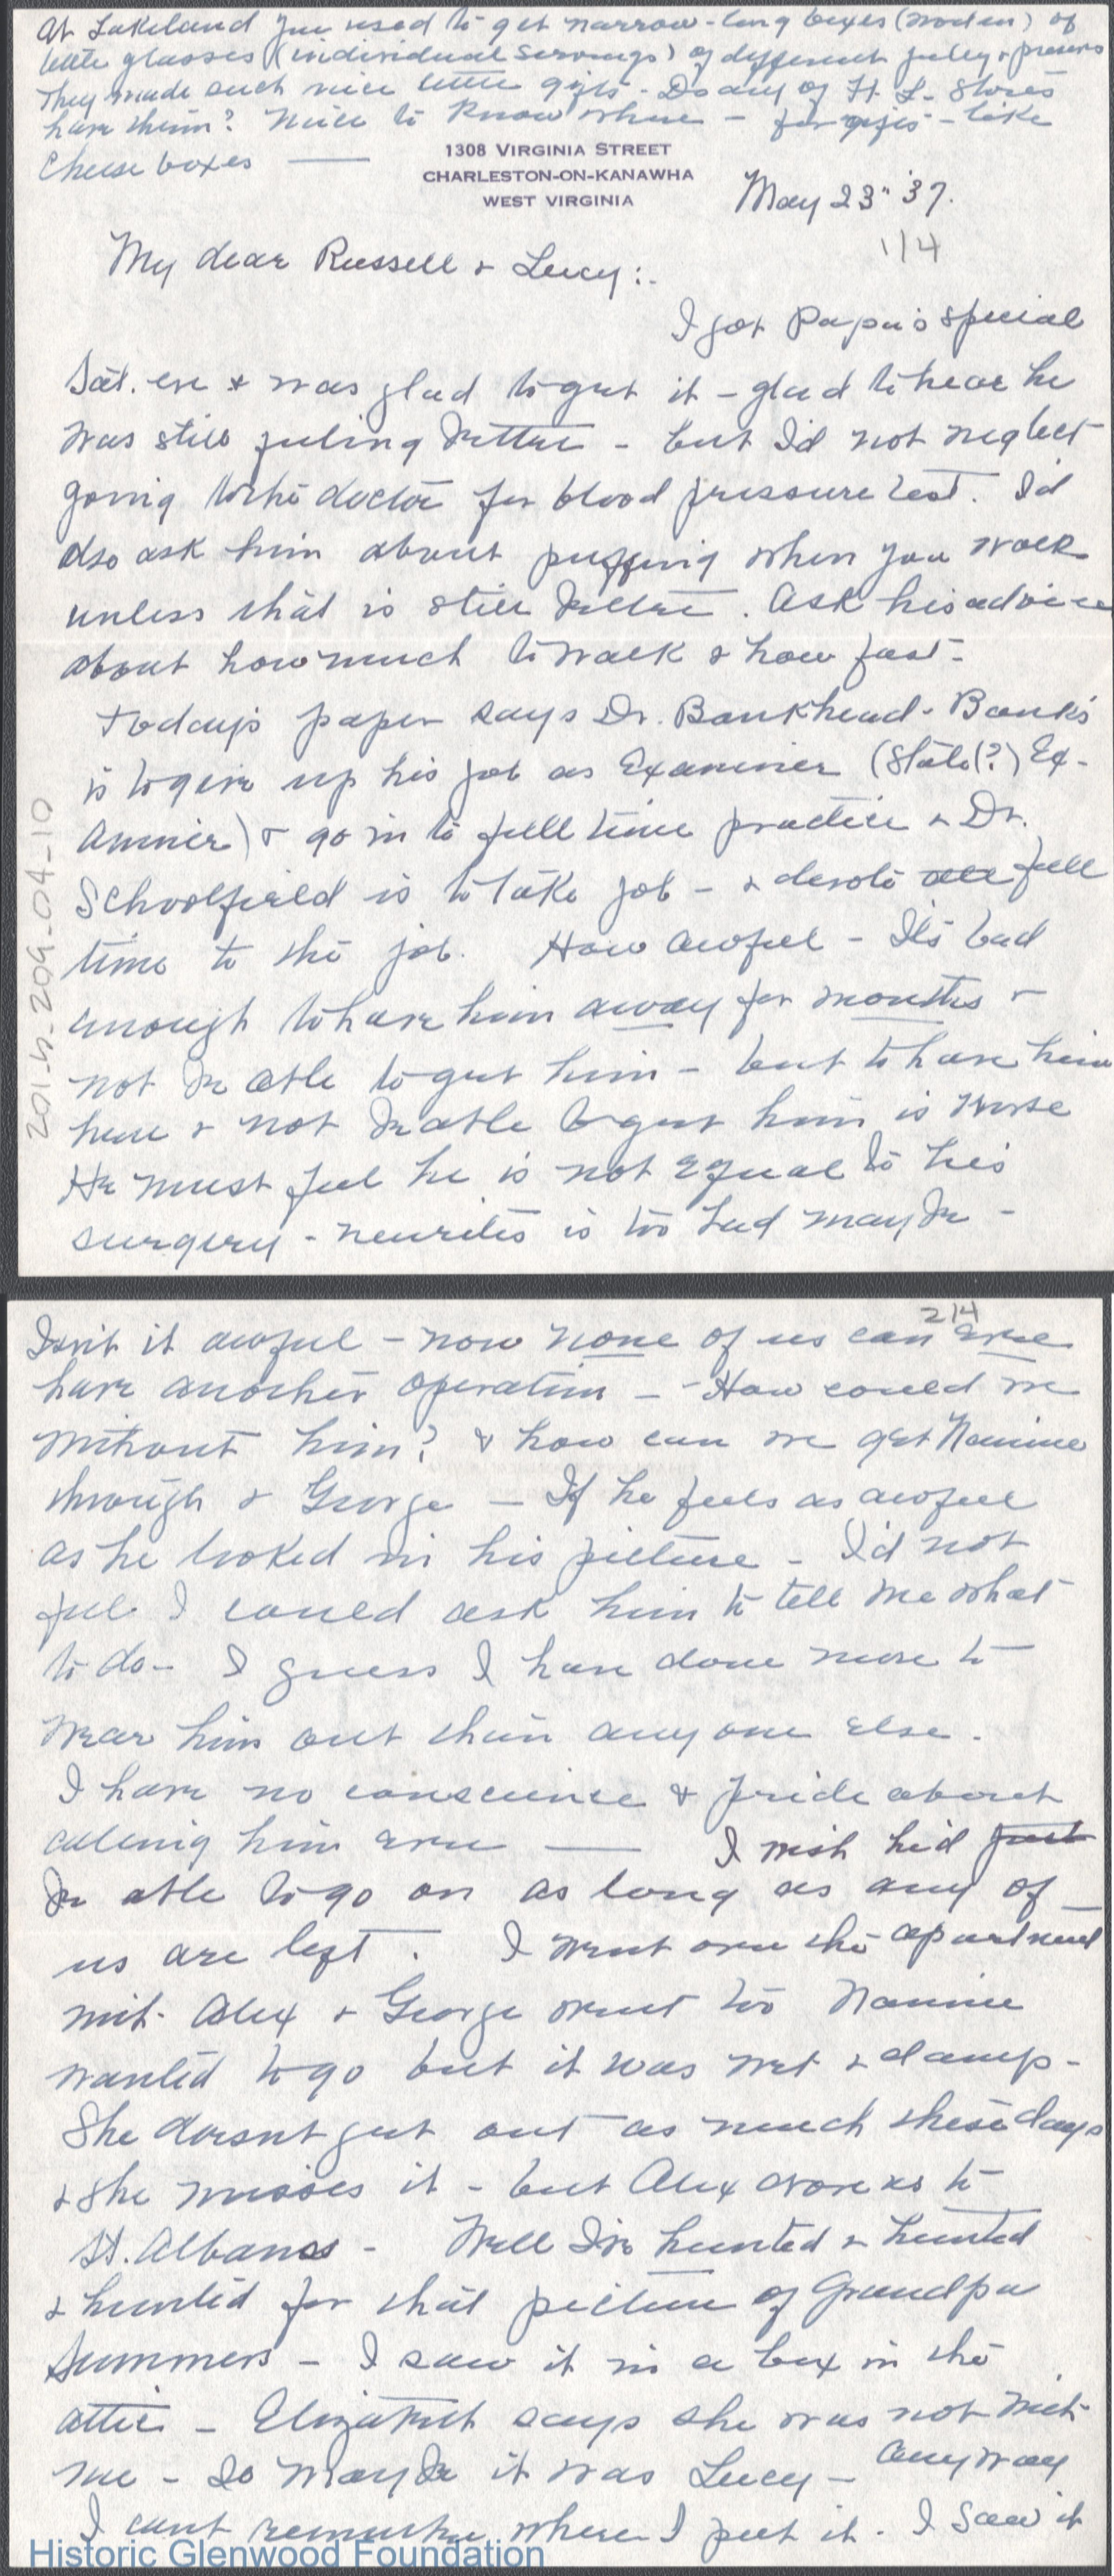 At Lakeland you used to get narrow-long boxes (wooden) of
little glasses (individual servings) of different jelly & preserves
They made such nice little gifts - Do any of Ft. L. Stores
have them? Nice to know where - for gifts - like
Cheese boxes ——
1308 VIRGINIA STREET
CHARLESTON-ON-KANAWHA
WEST VIRGINIA
May 23" '37.
1/4
My dear Russell & Lucy:-
I got Papa's special
Sat. eve & was glad to get it - glad to hear he
was still feeling better - but I'd not neglect
going to the doctor for blood pressure test. I'd
also ask him about puffing when you walk
unless that is still better. Ask his advice
about how much to walk & how fast-
Today's paper says Dr. Bankhead-Banks
is to give up his job as Examiner (State(?) Ex-
aminer) & go in to full time practice & Dr.
Schoolfield is to take job - & devote all full
time to the job. How awful - It's bad
enough to have him away for months &
not be able to get him - but to have him
here & not be able to get him is worse
He must feel he is not equal to his
surgery - neuritis is too bad maybe -
201-5-209-04-10
2/4
Isn't it awful - now none of us can ever
have another operation - How could we
without him? & how can we get Nannie
through & George - If he feels as awful
as he looked in his picture - I'd not
feel I could ask him to tell me what
to do- I guess I have done more to
wear him out than any one else.
I have no conscience & pride about
calling him ever —— I wish he'd just
be able to go on as long as any of
us are left. I went over the apartment
with Alex & George went too Nannie
wanted to go but it was wet & damp-
She doesnt get out as much these days
& she misses it - but Alex drove us to
St. Albans - Well I've hunted & hunted
& hunted for that picture of Grandpa
Summers - I saw it in a box in the
attic - Elizabeth says she was not with
me - So maybe it was Lucy - anyway
I cant remember where I put it. I saw it
Historic Glenwood Foundation